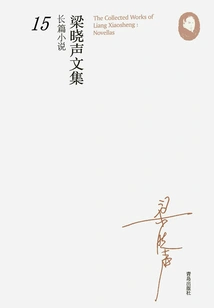 The Collected Works of
Liang Xiaosheng :
Novellas
15
梁晓声文集
长篇小说
梁晓声
青岛出版社